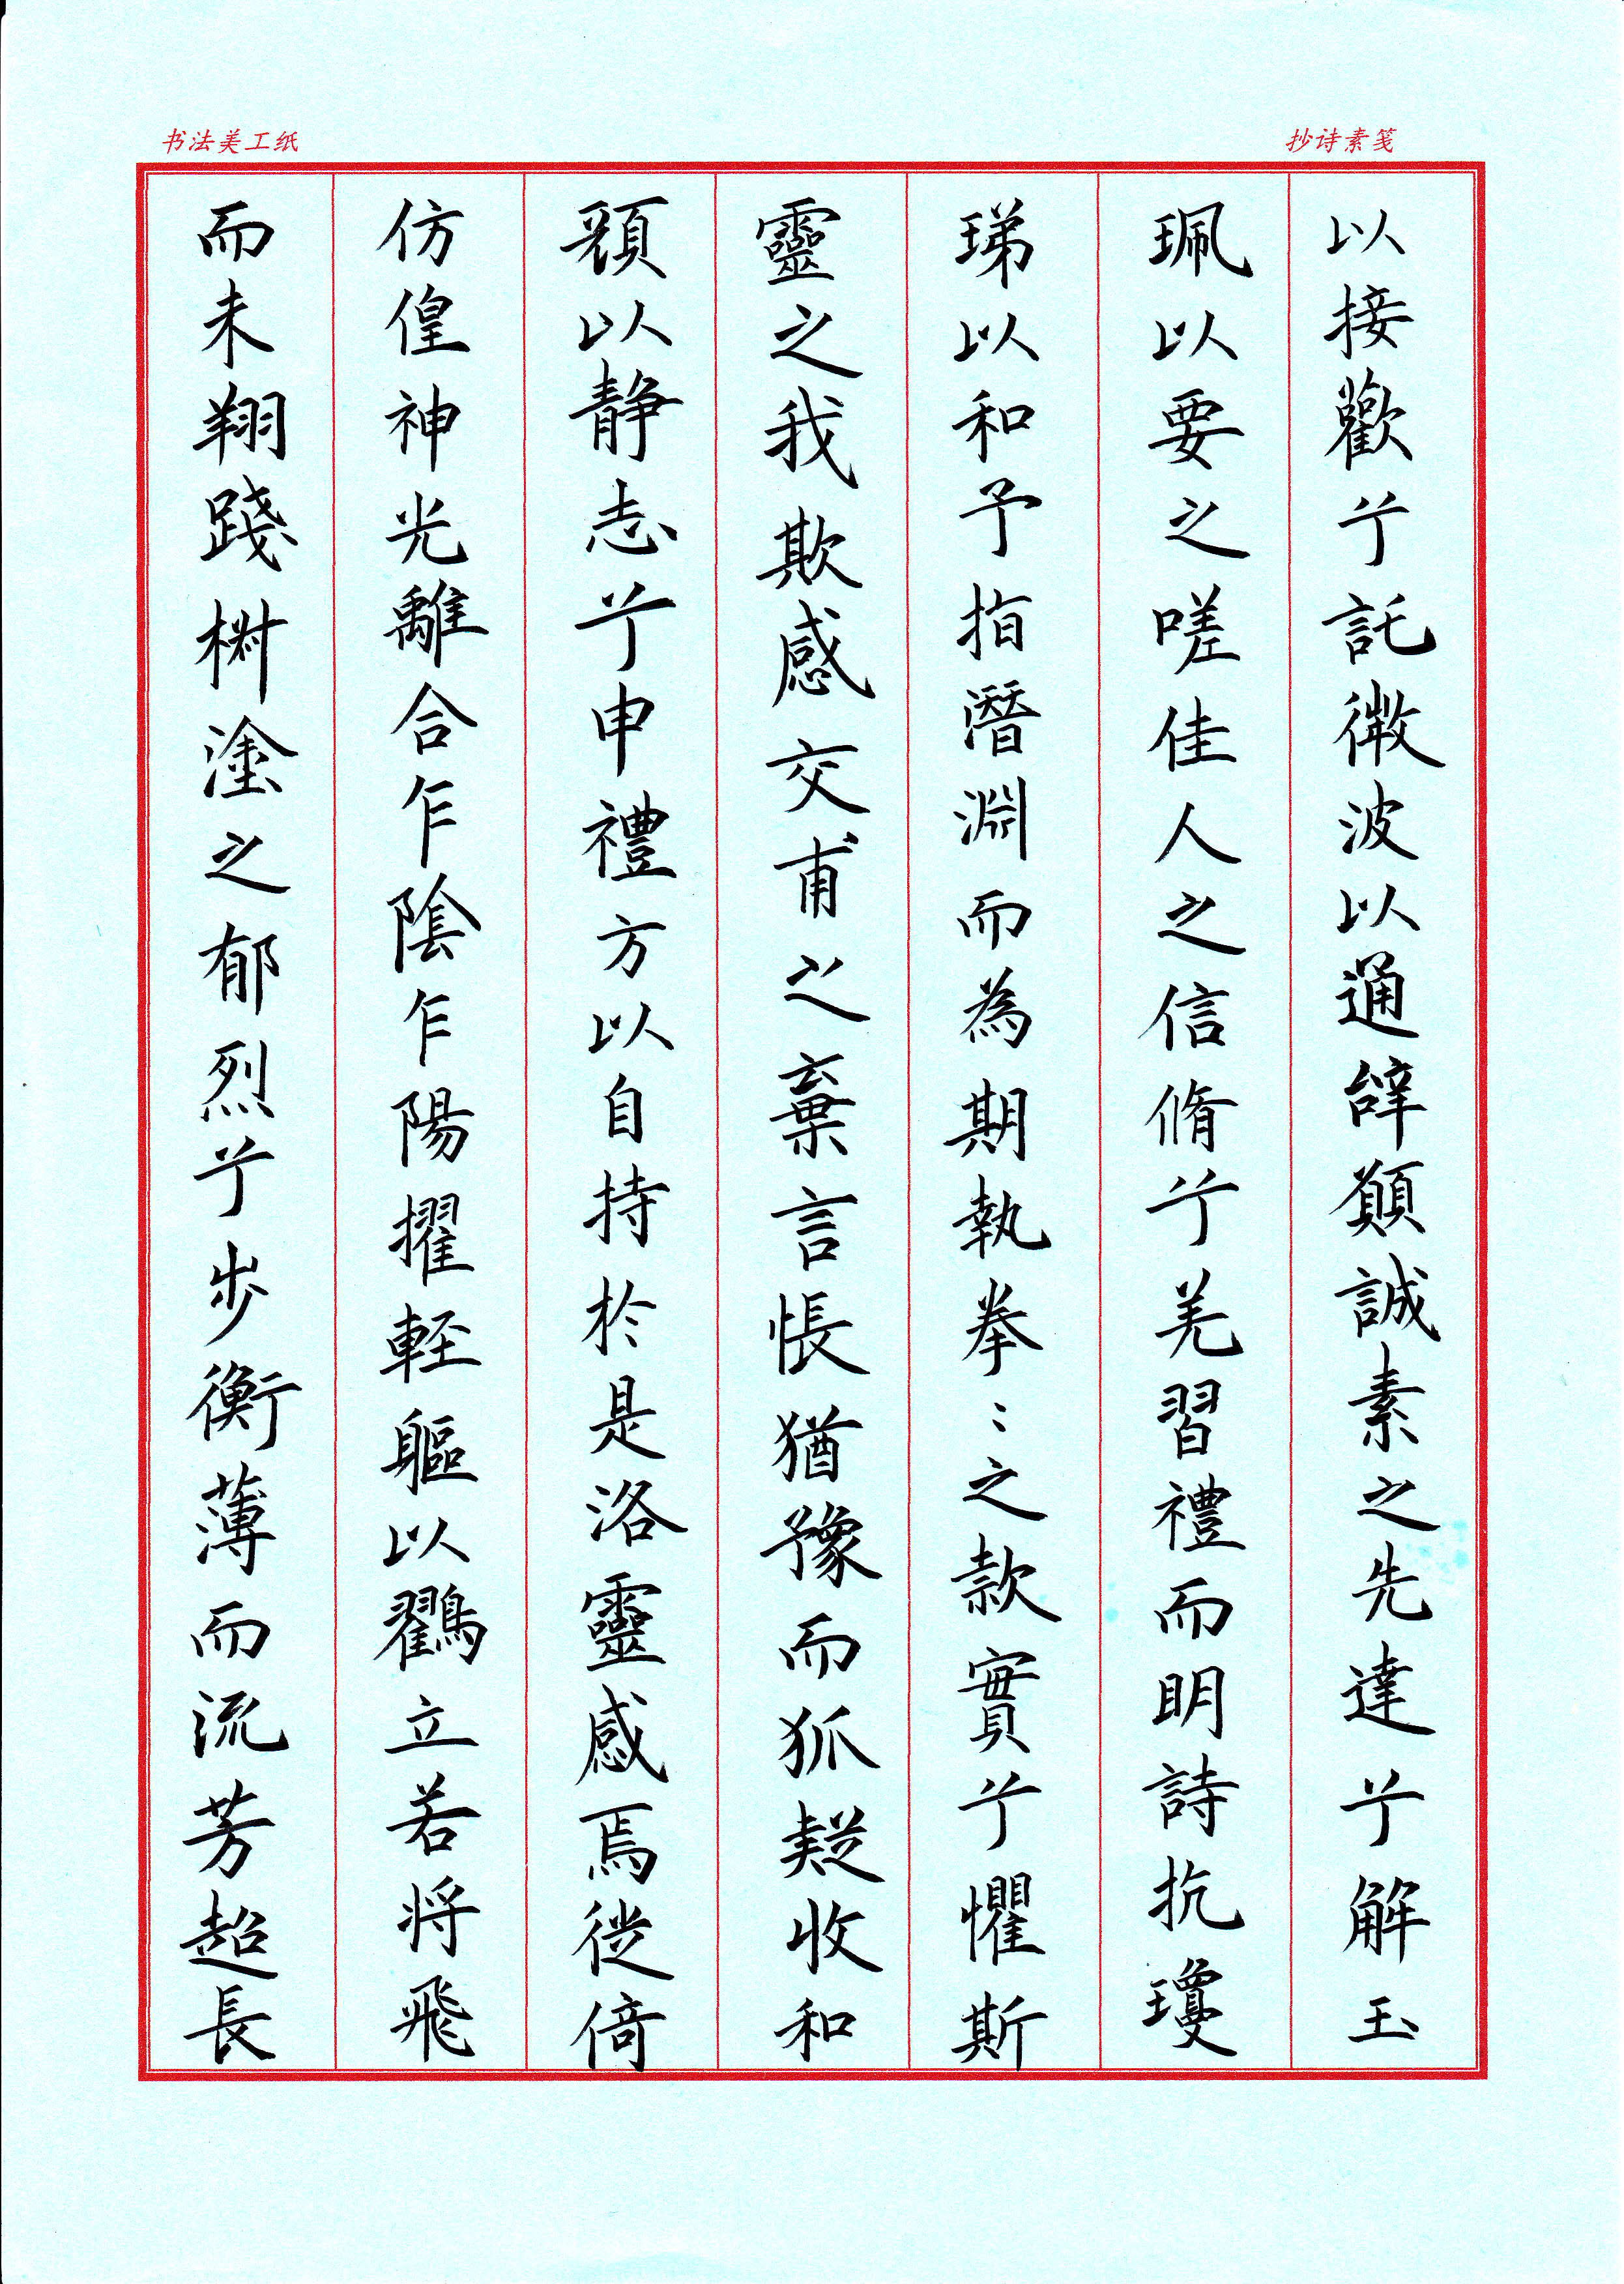 抄诗素笺
书法美工纸
以接歡兮託微波以通辞願誠素之先達兮解玉
珮以要之嗟佳人之信脩兮羌習禮而明詩抗瓊
珶以和予指潛淵而為期執拳〻之款實兮懼斯
靈之我欺感交甫之棄言悵猶豫而狐疑收和
顏以静志兮申禮方以自持於是洛靈感焉徙倚
仿偟神光離合乍陰乍陽擢輕軀以鸖立若将飛
而未翔踐椒塗之郁烈兮步衡薄而流芳超長